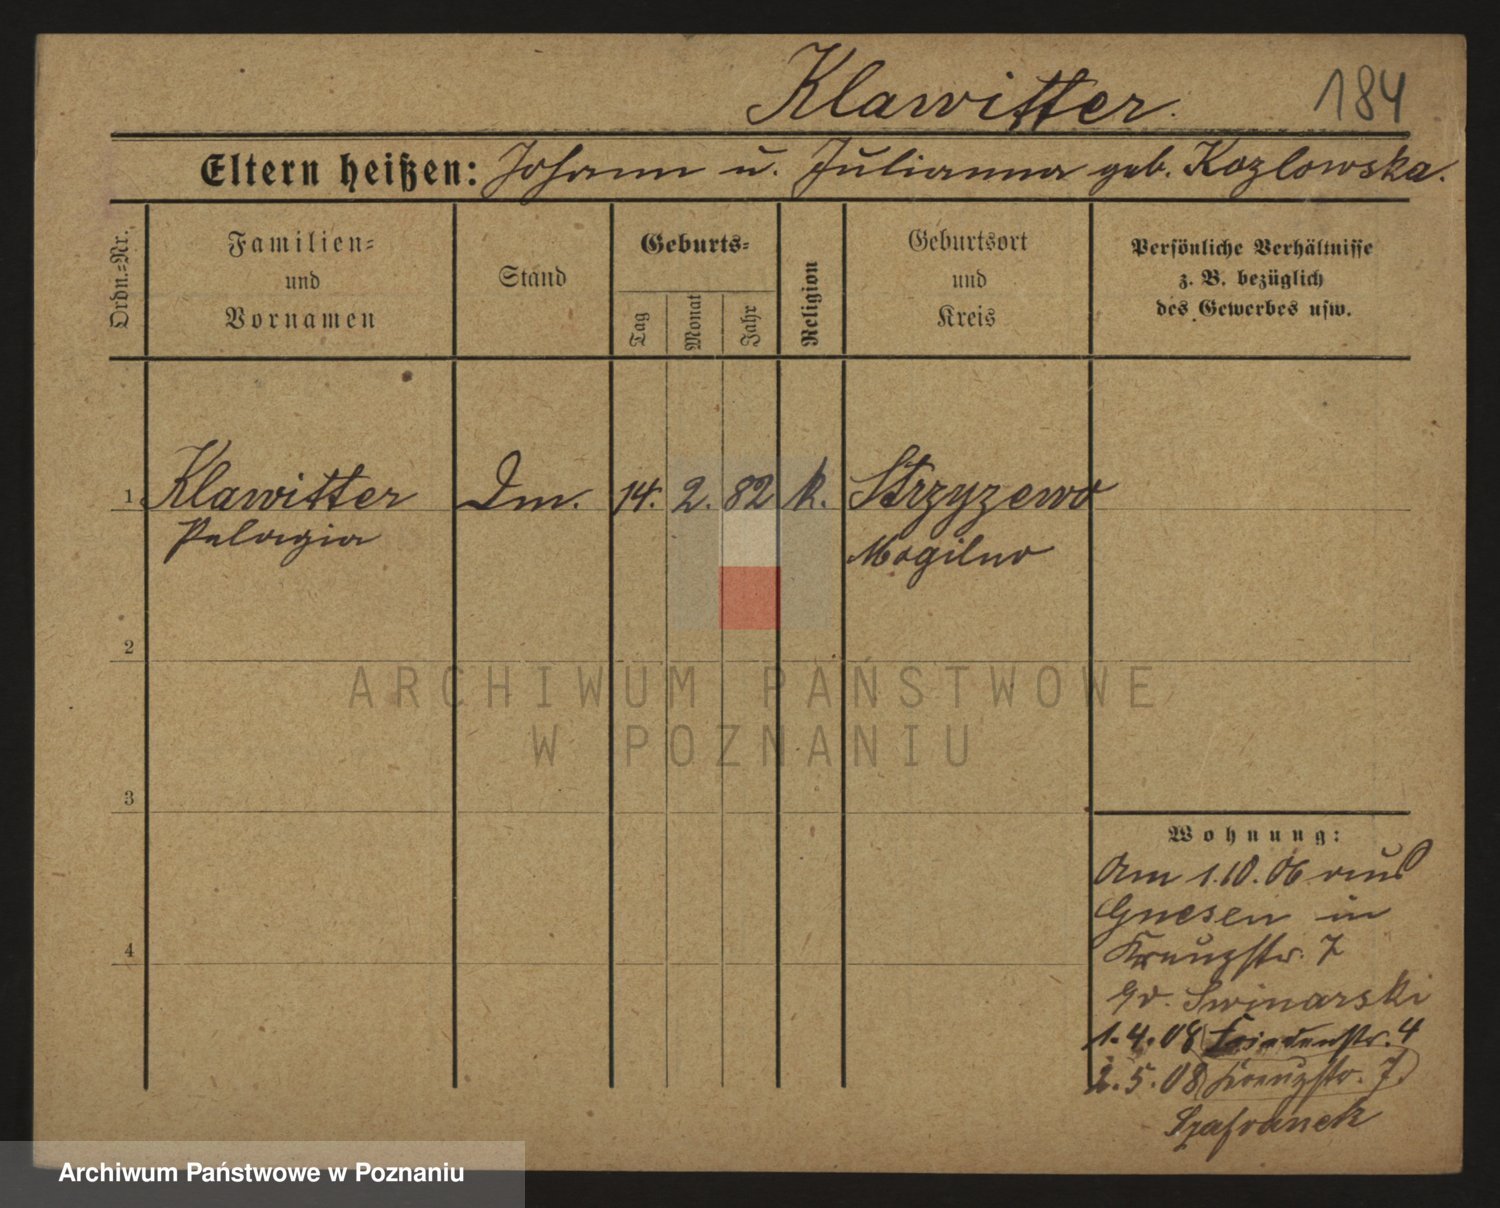 Klawitter.
184
Eltern heißen: Johann u. Julianna geb. Kozlowska.
Ordn.=Nr.
Familien=
und
Vornamen
Stand
Geburts=
Tag
Monat
Jahr
Religion
Geburtsort
und
Kreis
Persönliche Verhältnisse
z. B. bezüglich
des Gewerbes usw.
1. Klawitter Dm. 14. 2. 82 k. Strzyzewo
Pelagia Mogilno
2
ARCHIWUM PAŃSTWOWE
W POZNANIU
3
Wohnung:
Am 1.10.06 aus
Gnesen in
Kreuzstr. 7
Swinarski
1.4.08 Friedenstr. 4
2.5.08 Kreuzstr. 7
Szafranek
4
Archiwum Państwowe w Poznaniu